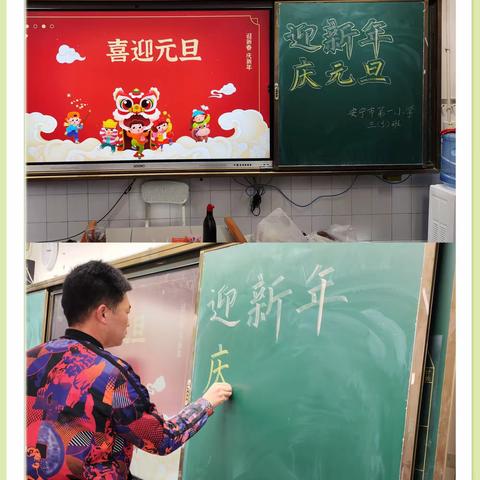 喜迎元旦
迎新春 庆新年
迎新年
庆元旦
安宁市第一小学
三(5)班
旦
迎新年
庆